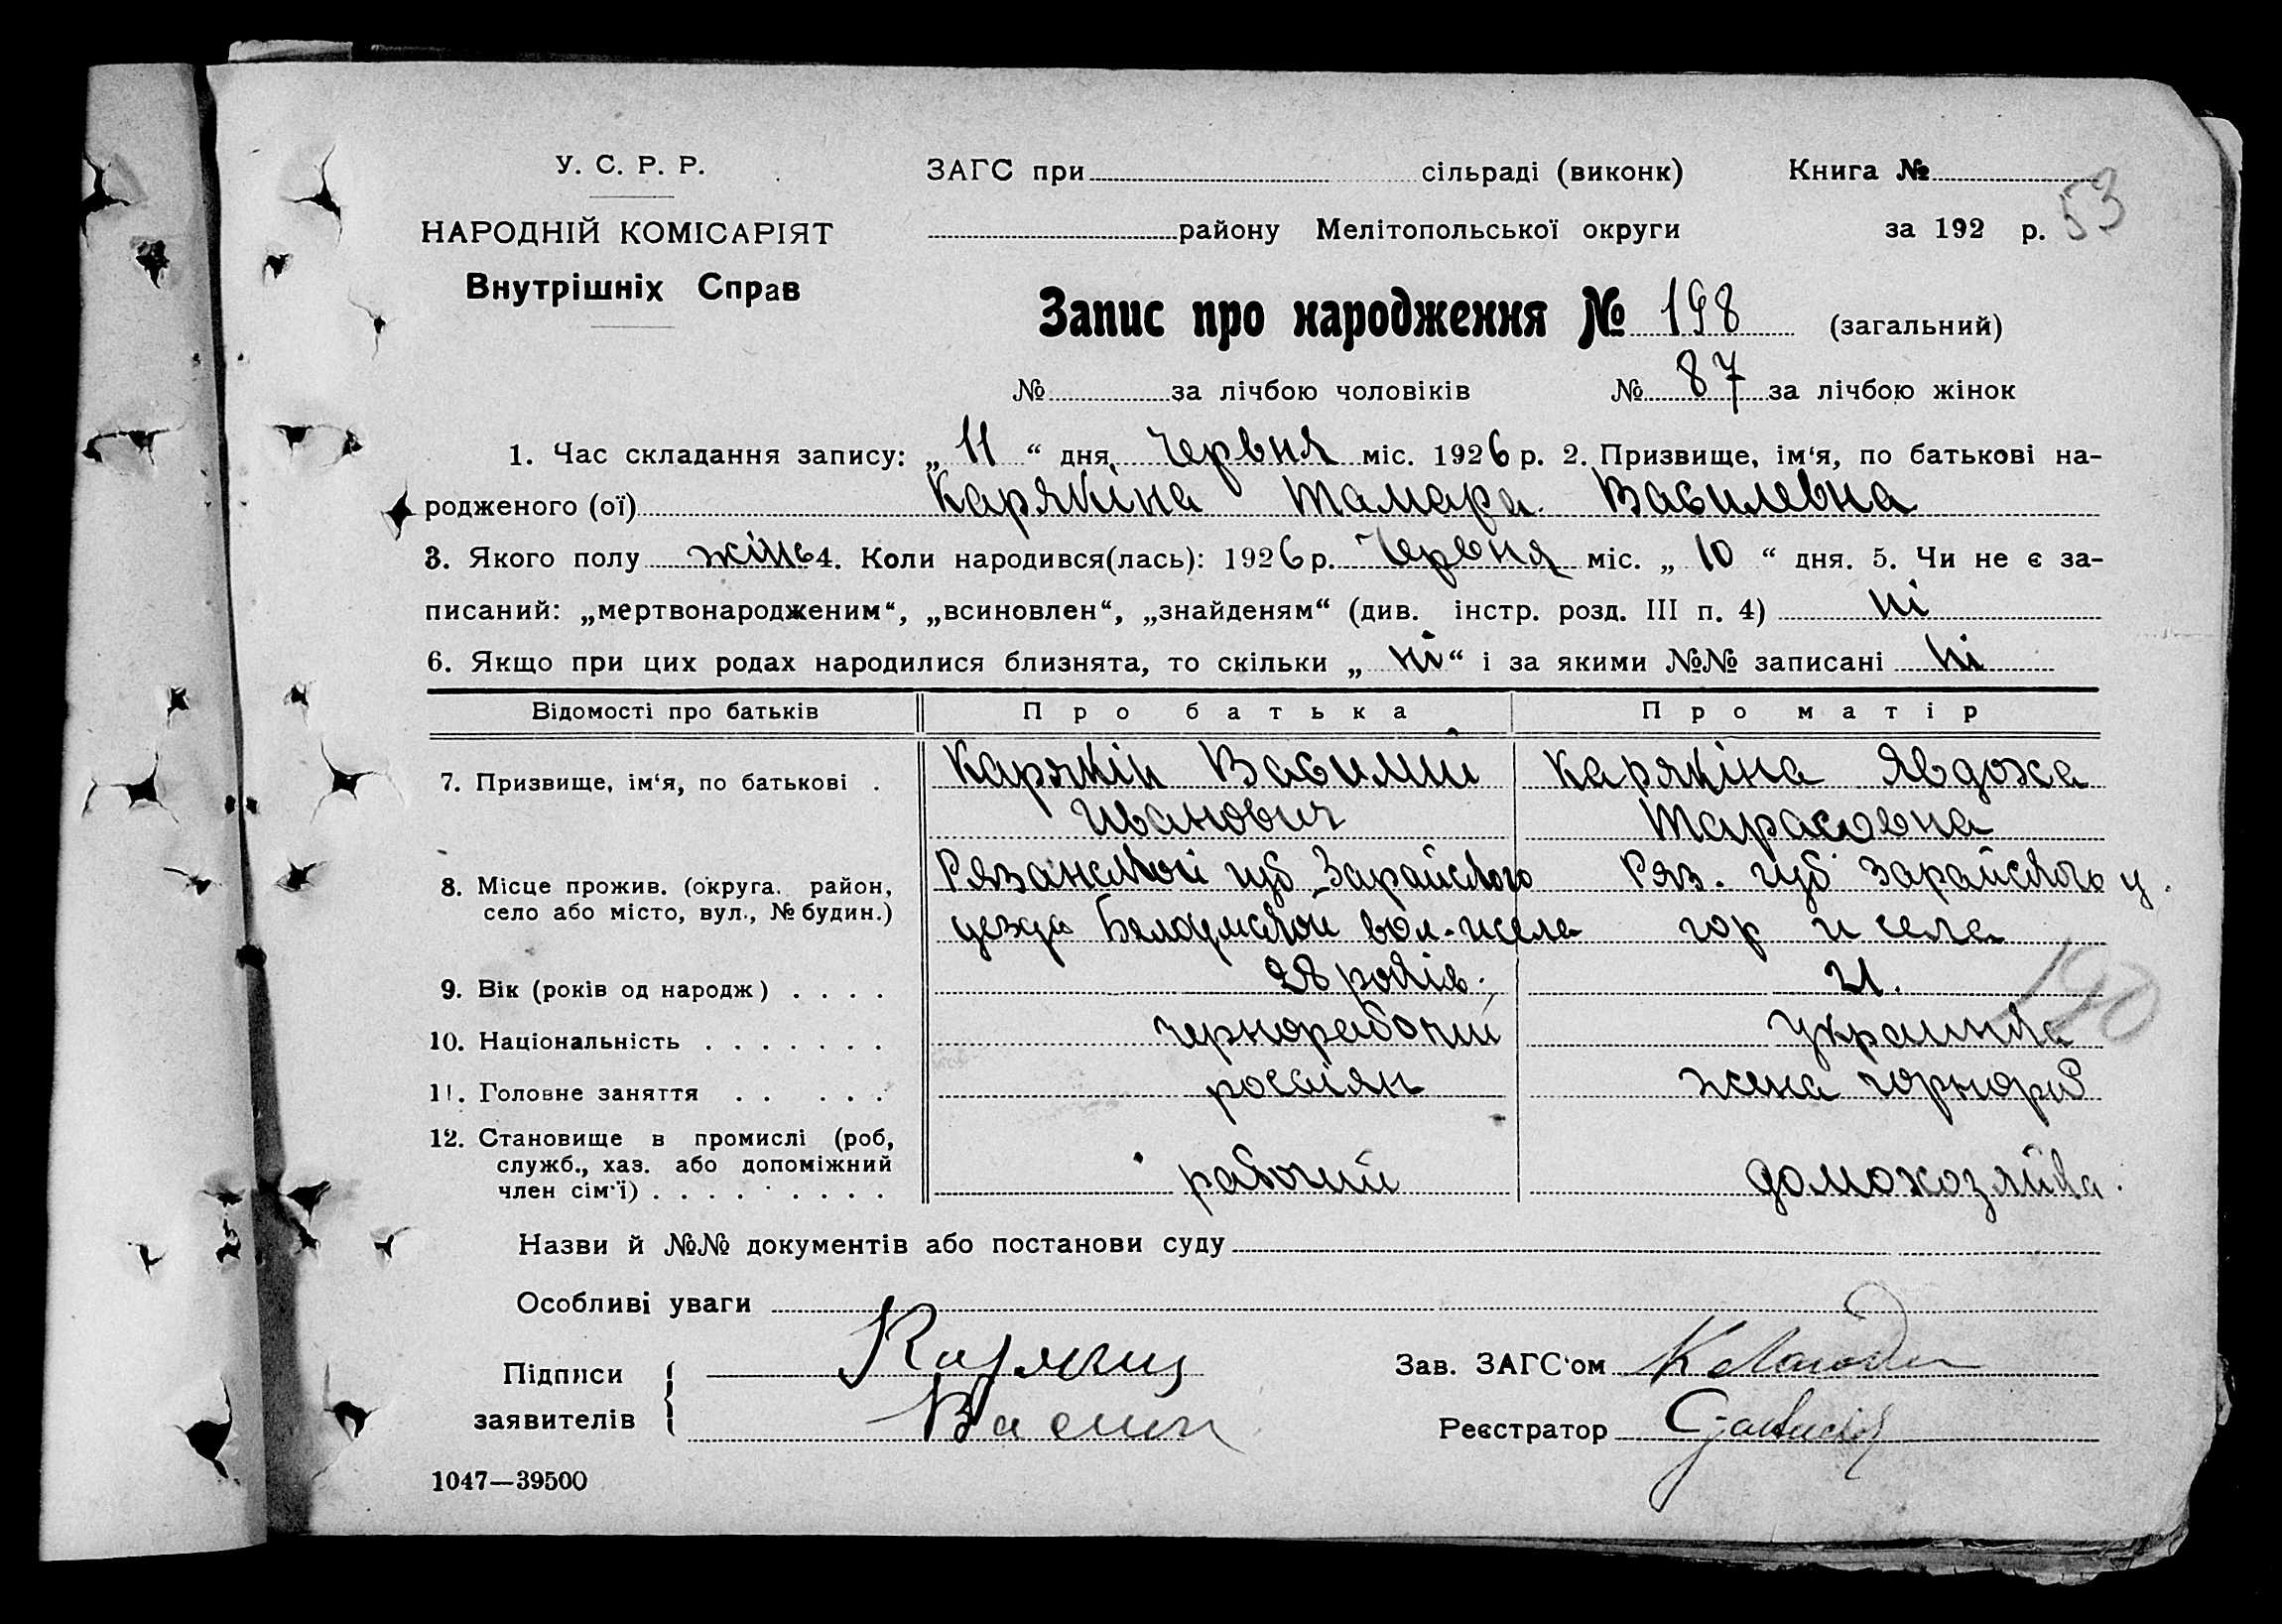 У. С. Р. Р.
НАРОДНІЙ КОМІСАРІЯТ
Внутрішніх Справ
ЗАГС при сільраді (виконк) Книга №
53
району Мелітопольської округи за 192 р.
Запис про народження № 198 (загальний)
№ за лічбою чоловіків № 87 за лічбою жінок
1. Час складання запису: „ 11 “ дня Червня міс. 1926 р. 2. Призвище, ім‘я, по батькові на-
родженого (ої) Карякіна Тамара Василевна
3. Якого полу жінь 4. Коли народився(лась): 1926 р. Червня міс. „ 10 “ дня. 5. Чи не є за-
писаний: „мертвонародженим“, „всиновлен“, „знайденям“ (див. інстр. розд. III п. 4) ні
6. Якщо при цих родах народилися близнята, то скільки „ ні “ і за якими №№ записані ні
Відомості про батьків Про батька Про матір
7. Призвище, ім‘я, по батькові . Карякін Василий Карякіна Явдоха
Иванович Тарасовна
8. Місце прожив. (округа. район, Рязанской губ Зарайского Ряз. губ Зарайского у.
село або місто, вул., № будин.) уезда вол. и села гор и села
9. Вік (років од народж) . . . . 28 років. 21.
190
10. Національність . . . . . . . чернорабочий украинка
11. Головне заняття . . . . . россіян жена чорнораб
12. Становище в промислі (роб,
служб., хаз. або допоміжний
член сім‘ї) . . . . . . . . . рабочий домохозяйка.
Назви й №№ документів або постанови суду
Особливі уваги
Підписи Карякин Зав. ЗАГС‘ом
заявителів Васил Реєстратор
1047—39500